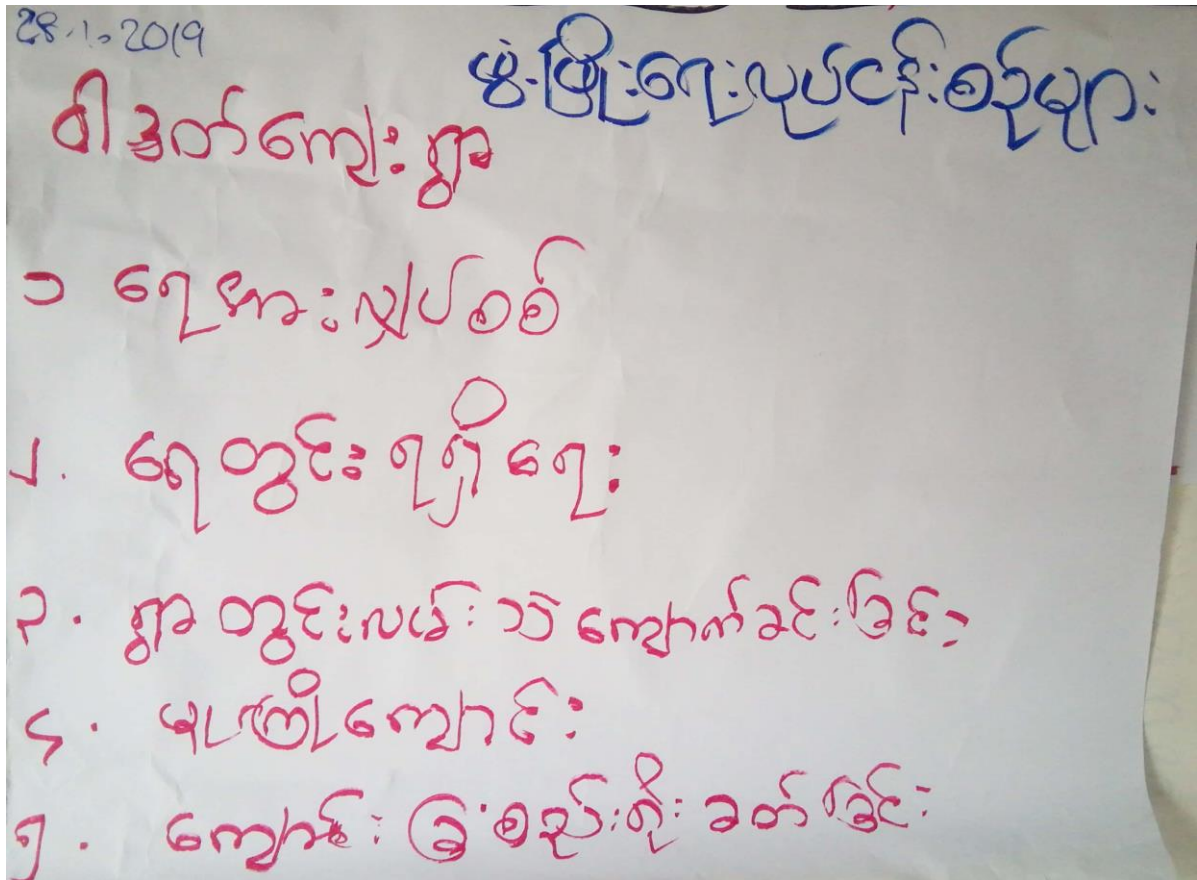 28.1.2019
ဖွံ့ဖြိုးရေးလုပ်ငန်းစဉ်များ
ဝါဒွတ်ကျေးရွာ
၁ ရေအားလျှပ်စစ်
၂. ရေတွင်းရရှိရေး
၃. ရွာတွင်းလမ်း သဲကျောက်ခင်းခြင်း
၄. မူကြိုကျောင်း
၅. ကျောင်းခြံစည်းရိုးခတ်ခြင်း